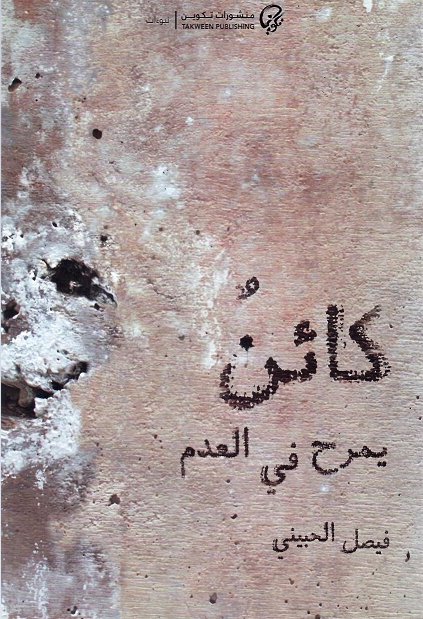 منشورات تكوين | نبوءات
TAKWEEN PUBLISHING
تكوين
كائنٌ
يمرح في العدم
فيصل الحبيني